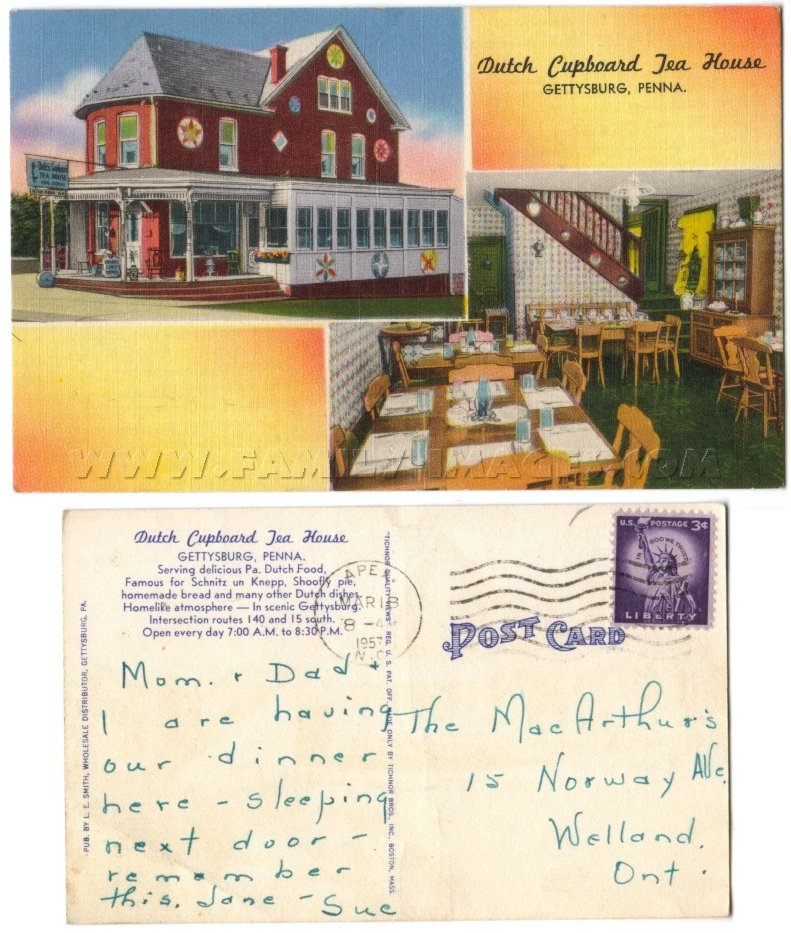 Dutch Cupboard Tea House
GETTYSBURG, PENNA.
Dutch Cupboard
TEA HOUSE
WWW.FAMILY-IMAGES.COM
Dutch Cupboard Tea House
GETTYSBURG, PENNA.
Serving delicious Pa. Dutch Food,
Famous for Schnitz un Knepp, Shoofly pie,
homemade bread and many other Dutch dishes.
Homelike atmosphere — In scenic Gettysburg.
Intersection routes 140 and 15 south.
Open every day 7:00 A.M. to 8:30 P.M.
PUB. BY L. E. SMITH, WHOLESALE DISTRIBUTOR, GETTYSBURG, PA.
"TICHNOR QUALITY VIEWS" REG. U. S. PAT. OFF. MADE ONLY BY TICHNOR BROS., INC., BOSTON, MASS
APEX
MAR 18
8 - AM
1957
N.C.
U.S. POSTAGE 3¢
IN GOD WE TRUST
LIBERTY
POST CARD
Mom. & Dad &
I are having
our dinner
here - sleeping
next door -
remember
this, Jane - Sue
The MacArthur's
15 Norway Ave.
Welland,
Ont.